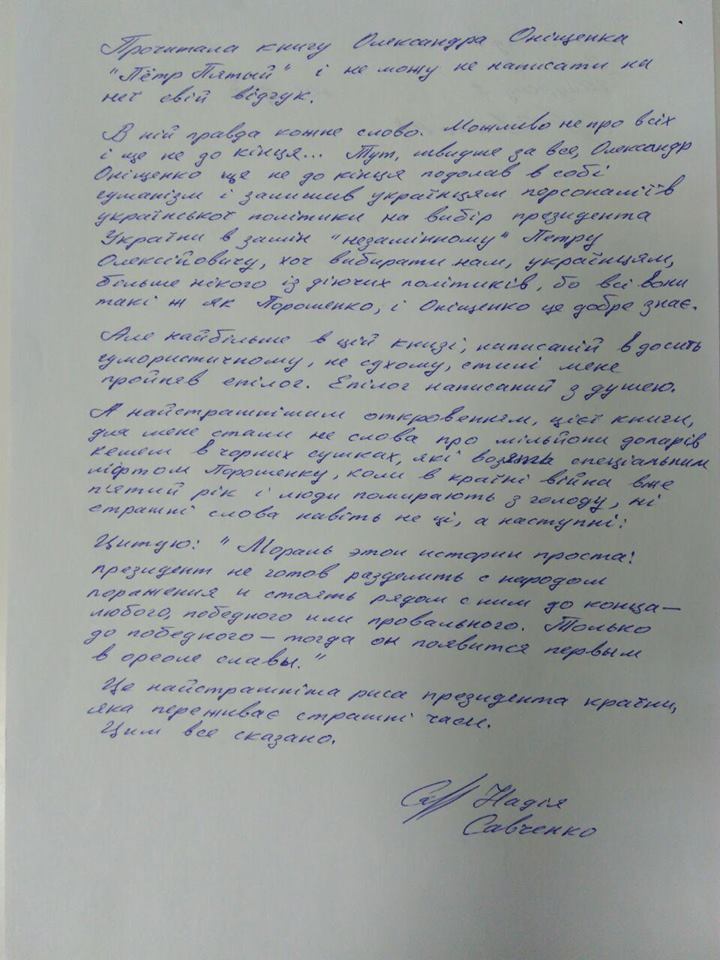 Прочитала книгу Олександра Оніщенка
"Пётр Пятый" і не можу не написати на
неї свій відгук.
В ній правда кожне слово. Можливо не про всіх
і ще не до кінця... Тут, швидше за все, Олександр
Оніщенко ще не до кінця подолав в собі
гуманізм і залишив українцям персоналіїв
української політики на вибір президента
України в замін "незамінному" Петру
Олексійовичу, хоч вибирати нам, українцям,
більше нікого із діючих політиків, бо всі вони
такі ж як Порошенко, і Оніщенко це добре знає.
Але найбільше в цій книзі, написаній в досить
гумористичному, не сухому, стилі мене
пройняв епілог. Епілог написаний з душею.
А найстрашнішим откровенням, цієї книги,
для мене стали не слова про мільйони доларів
кешем в чорних сумках, які возять спеціальним
ліфтом Порошенку, коли в країні війна вже
п'ятий рік і люди помирають з голоду, ні
страшні слова навіть не ці, а наступні:
Цитую: "Мораль этой истории проста!
президент не готов разделить с народом
поражения и стоять рядом с ним до конца —
любого, победного или провального. Только
до победного — тогда он появится первым
в ореоле славы."
Це найстрашніша риса президента країни,
яка переживає страшні часи.
Цим все сказано.
Надія
Савченко